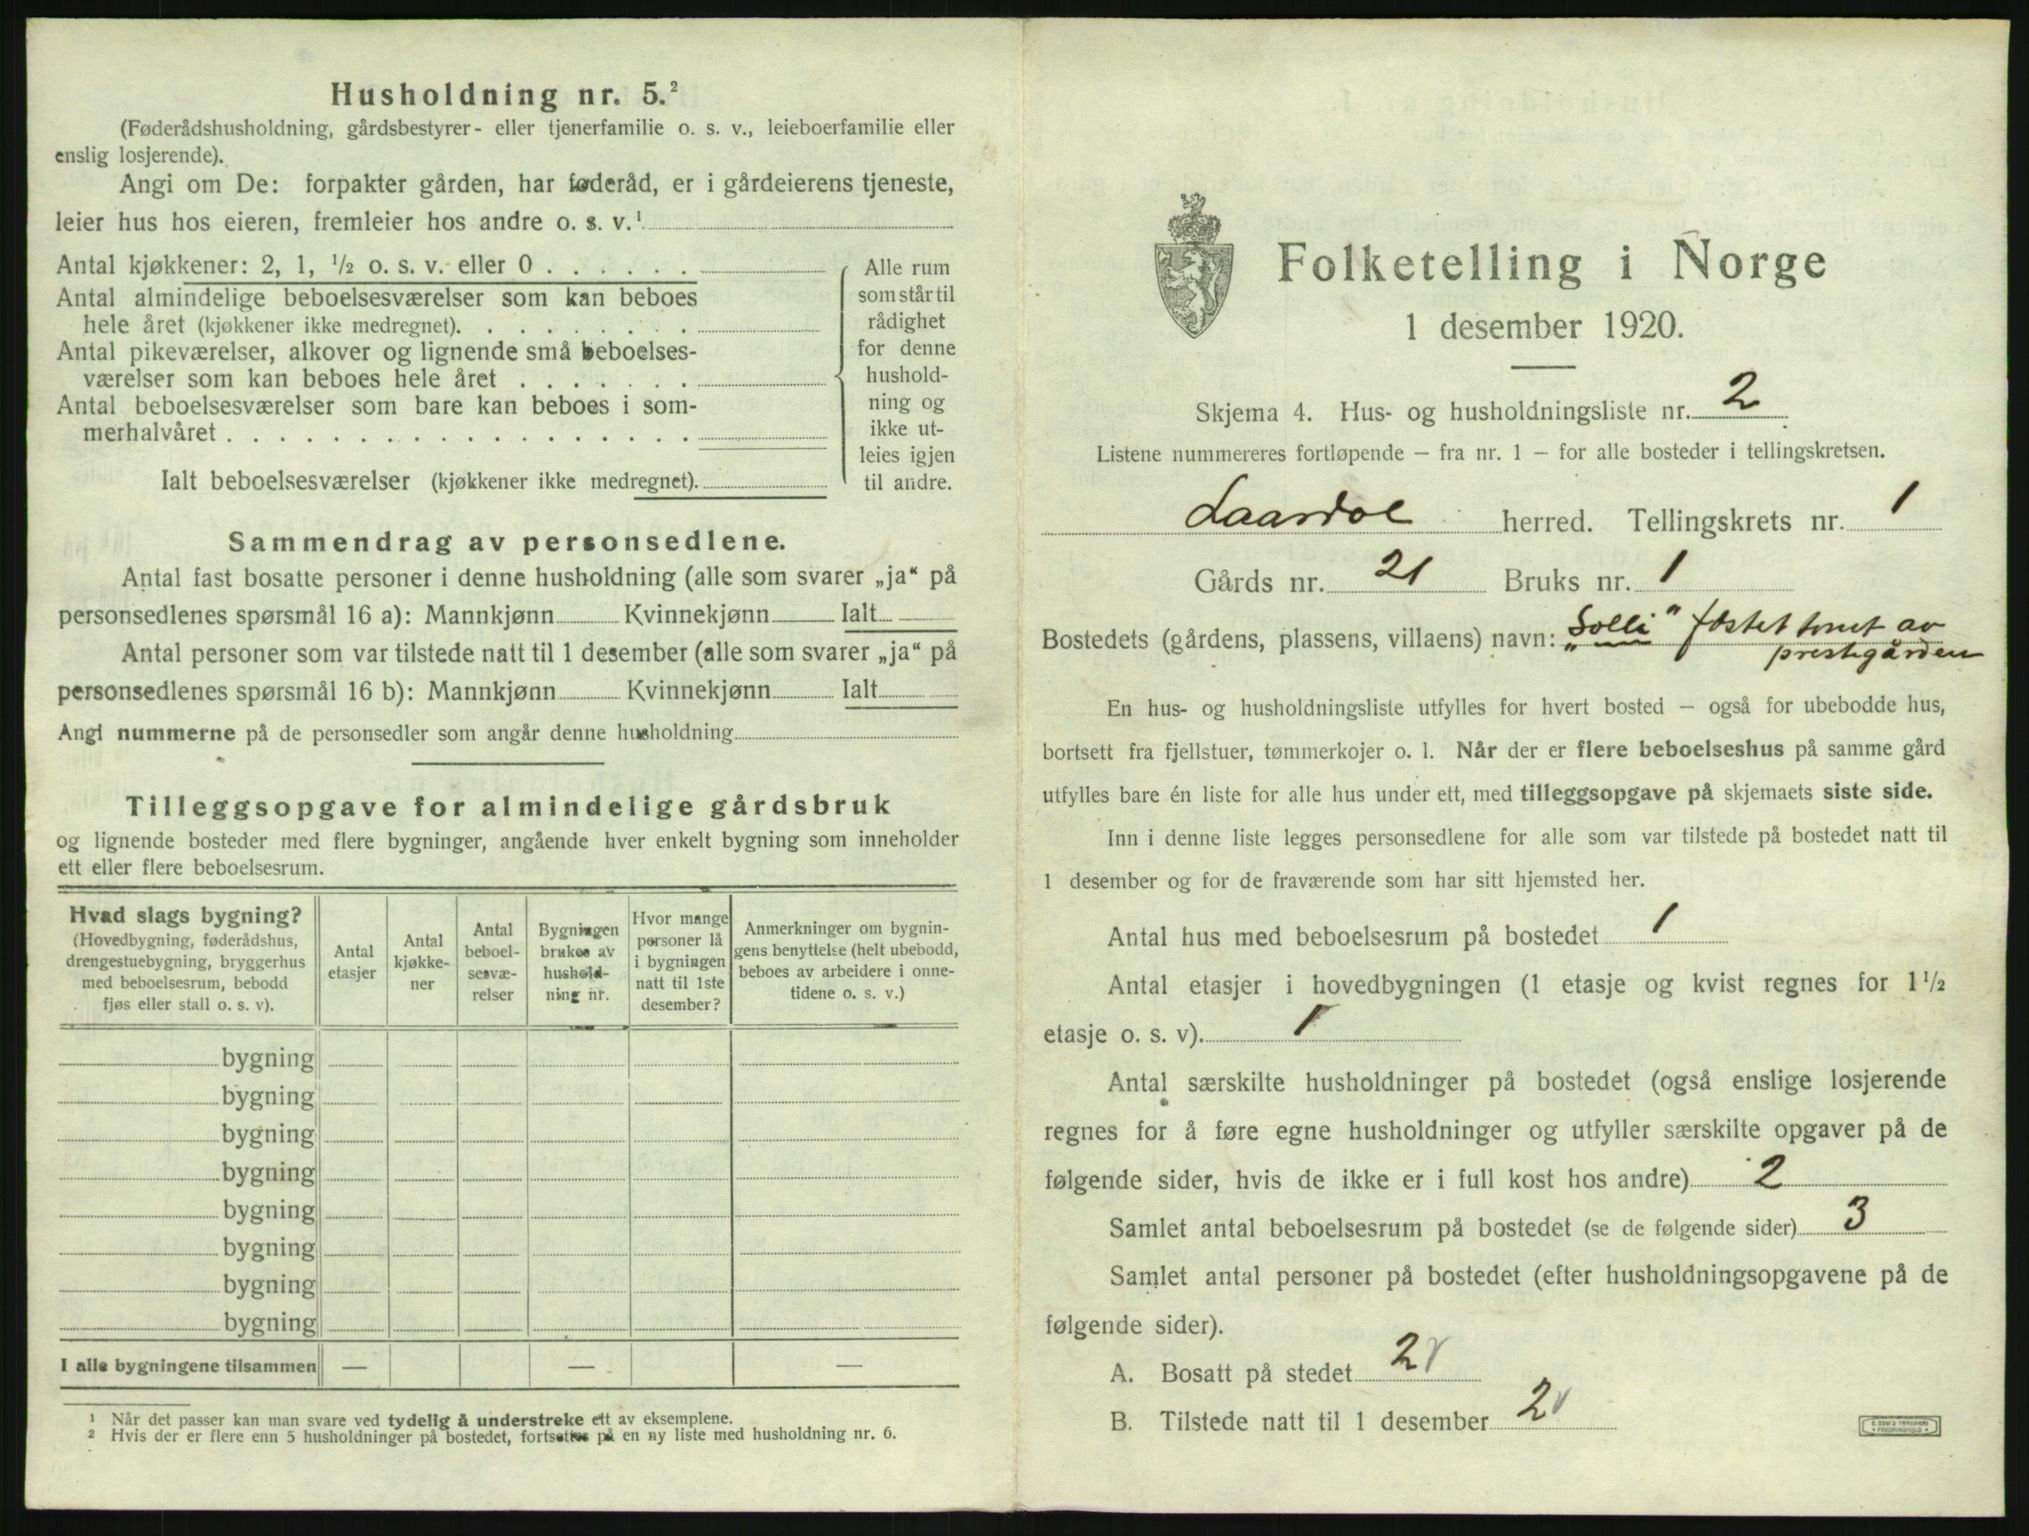 Husholdning nr. 5.²
(Føderådshusholdning, gårdsbestyrer- eller tjenerfamilie o. s. v., leieboerfamilie eller
enslig losjerende).
Angi om De: forpakter gården, har føderåd, er i gårdeierens tjeneste,
leier hus hos eieren, fremleier hos andre o. s. v.¹
Antal kjøkkener: 2, 1, ½ o. s. v. eller 0 . . . . . .
Antal almindelige beboelsesværelser som kan beboes
hele året (kjøkkener ikke medregnet). . . . . . . . .
Antal pikeværelser, alkover og lignende små beboelses-
værelser som kan beboes hele året . . . . . . .
Antal beboelsesværelser som bare kan beboes i som-
merhalvåret . . . . . . . . . . . . . . . . . .
Ialt beboelsesværelser (kjøkkener ikke medregnet).
Alle rum
som står til
rådighet
for denne
hushold-
ning og
ikke ut-
leies igjen
til andre.
Sammendrag av personsedlene.
Antal fast bosatte personer i denne husholdning (alle som svarer „ja“ på
personsedlenes spørsmål 16 a): Mannkjønn Kvinnekjønn Ialt
Antal personer som var tilstede natt til 1 desember (alle som svarer „ja“ på
personsedlenes spørsmål 16 b): Mannkjønn Kvinnekjønn Ialt
Angi nummerne på de personsedler som angår denne husholdning
Tilleggsopgave for almindelige gårdsbruk
og lignende bosteder med flere bygninger, angående hver enkelt bygning som inneholder
ett eller flere beboelsesrum.
Hvad slags bygning?
(Hovedbygning, føderådshus,
drengestuebygning, bryggerhus
med beboelsesrum, bebodd
fjøs eller stall o. s. v).
Antal
etasjer
Antal
kjøkke-
ner
Antal
beboel-
sesvæ-
relser
Bygningen
brukes av
hushold-
ning nr.
Hvor mange
personer lå
i bygningen
natt til 1ste
desember?
Anmerkninger om bygnin-
gens benyttelse (helt ubebodd,
beboes av arbeidere i onne-
tidene o. s. v.)
bygning
bygning
bygning
bygning
bygning
bygning
bygning
bygning
I alle bygningene tilsammen — — —
¹ Når det passer kan man svare ved tydelig å understreke ett av eksemplene.
² Hvis der er flere enn 5 husholdninger på bostedet, fortsettes på en ny liste med husholdning nr. 6.
Folketelling i Norge
1 desember 1920.
Skjema 4. Hus- og husholdningsliste nr. 2
Listene nummereres fortløpende – fra nr. 1 – for alle bosteder i tellingskretsen.
Laardal herred. Tellingskrets nr. 1
Gårds nr. 21 Bruks nr. 1
Bostedets (gårdens, plassens, villaens) navn: „Solli“ festet tomt av
prestegården
En hus- og husholdningsliste utfylles for hvert bosted – også for ubebodde hus,
bortsett fra fjellstuer, tømmerkojer o. l. Når der er flere beboelseshus på samme gård
utfylles bare én liste for alle hus under ett, med tilleggsopgave på skjemaets siste side.
Inn i denne liste legges personsedlene for alle som var tilstede på bostedet natt til
1 desember og for de fraværende som har sitt hjemsted her.
Antal hus med beboelsesrum på bostedet 1
Antal etasjer i hovedbygningen (1 etasje og kvist regnes for 1½
etasje o. s. v). 1
Antal særskilte husholdninger på bostedet (også enslige losjerende
regnes for å føre egne husholdninger og utfyller særskilte opgaver på de
følgende sider, hvis de ikke er i full kost hos andre) 2
Samlet antal beboelsesrum på bostedet (se de følgende sider) 3
Samlet antal personer på bostedet (efter husholdningsopgavene på de
følgende sider).
A. Bosatt på stedet 2
B. Tilstede natt til 1 desember 2